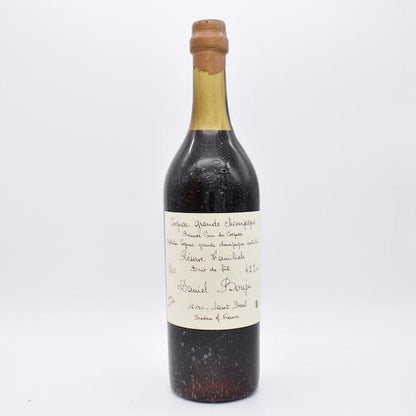 Cognac grande champagne
Premier Cru du Cognac
Appellation Cognac grande champagne contrôlée
Réserve Familiale
70cl Brut de fût 42%vol
Daniel Bouju
16130 - Saint Preuil
Produce of France